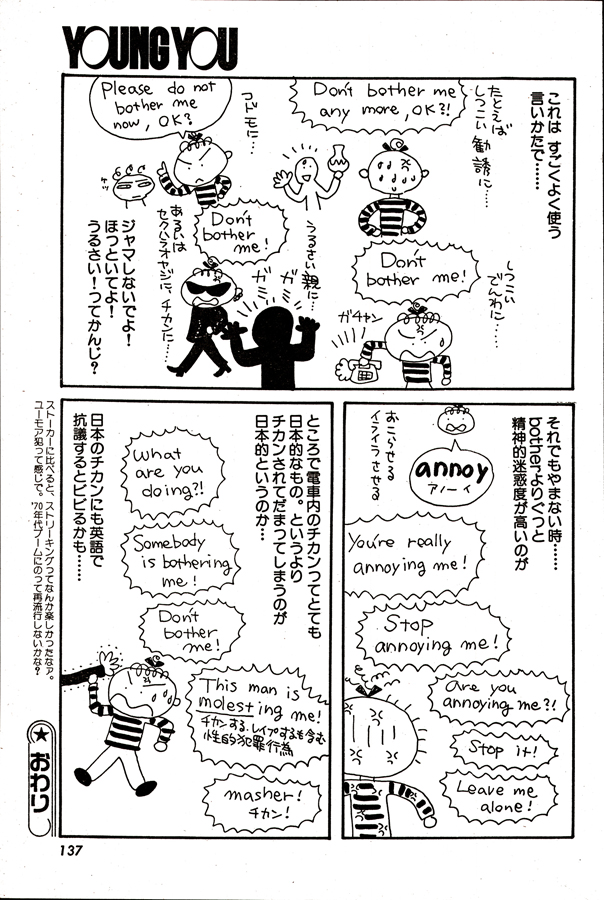 YOUNG YOU
これは すごくよく使う
言いかたで……
たとえば
しつこい勧誘に…
Don't bother me
any more, OK?!
コドモに…
Please do not
bother me
now, OK?
ケッ
しつこい
でんわに…
Don't
bother me!
ガチャン
うるさい親に…
ガガ
Don't
bother
me!
あるいは
セクハラオヤジに、チカンに…
ジャマしないでよ!
ほっといてよ!
うるさい!ってかんじ?
それでもやまない時……
botherよりぐっと
精神的迷惑度が高いのが
annoy
アノーイ
おこらせる
イライラさせる
You're really
annoying me!
Stop
annoying me!
Are you
annoying me?!
Stop it!
Leave me
alone!
ところで電車内のチカンってとても
日本的なもの。というより
チカンされてだまってしまうのが
日本的というのか…
What
are you
doing?!
Somebody
is bothering
me!
Don't
bother
me!
This man is
molesting me!
チカンする、レイプするも含む
性的犯罪行為
masher!
チカン!
日本のチカンにも英語で
抗議するとビビるかも……
ストーカーに比べると、ストリーキングってなんか楽しかったなァ。
ユーモア犯って感じで。'70年代ブームにのって再流行しないかな?
★おわり
137